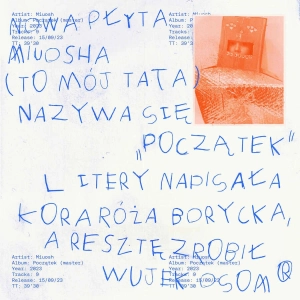 Artist: Miuosh
Album: Początek (master)
Year: 2023
Tracks: 9
Release: 15/09/23
TT: 39'30
Artist: Miuosh
Album: Początek (master)
Year: 2023
Tracks: 9
Release: 15/09/23
TT: 39'30
NOWA PŁYTA
MIUOSHA
(TO MÓJ TATA)
NAZYWA SIĘ
„POCZĄTEK"
LITERY NAPISAŁA
KORA RÓŻA BORYCKA,
A RESZTĘ ZROBIŁ
WUJEK SOM®
Artist: Miuosh
Album: Początek (master)
Year: 2023
Tracks: 9
Release: 15/09/23
TT: 39'30
Artist: Miuosh
Album: Początek (master)
Year: 2023
Tracks: 9
Release: 15/09/23
TT: 39'30